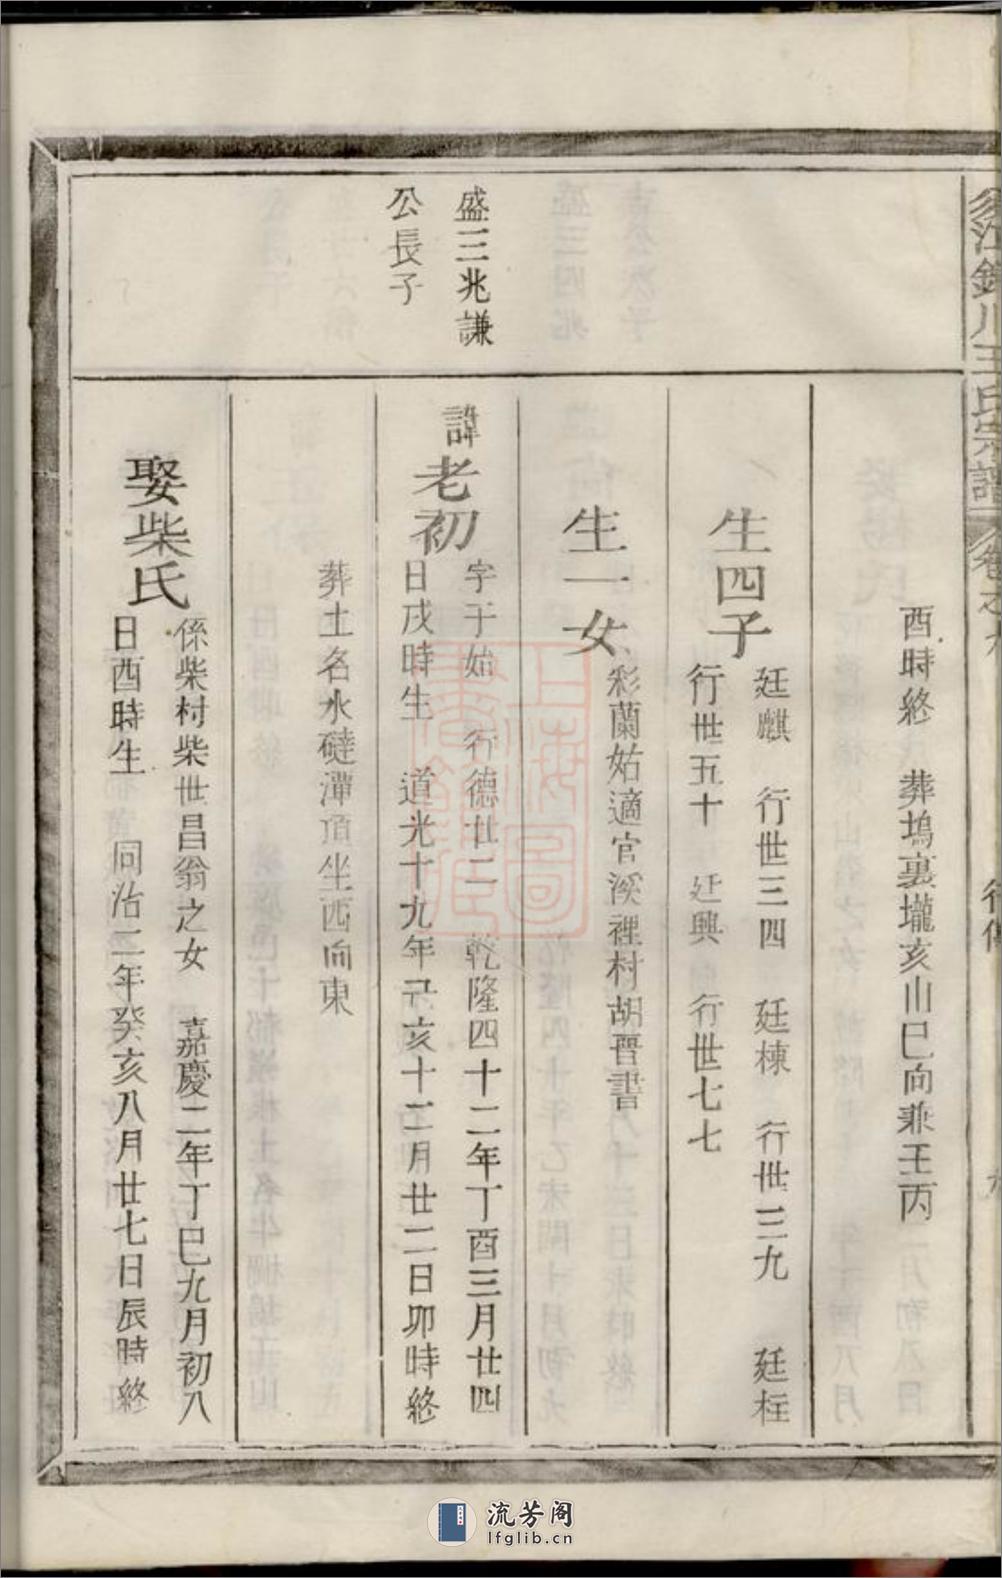 江 川王氏宗譜 卷之九
行傳
酉時終 葬塢裏壠亥山巳向兼壬丙
生四子
廷麒 行世三四 廷棟 行世三九 廷柱
行世五十 廷興 行世七七
生一女
彩蘭姑適官溪裡村胡晋書
盛三兆謙
公長子
諱老初
字于始 行德廿二 乾隆四十二年丁酉三月廿四
日戌時生 道光十九年己亥十二月廿二日卯時終
葬土名水硾潭頂坐西向東
娶柴氏
係柴村柴世昌翁之女 嘉慶二年丁巳九月初八
日酉時生 同治二年癸亥八月廿七日辰時終
上海圖書館藏
流芳阁
lfglib.cn